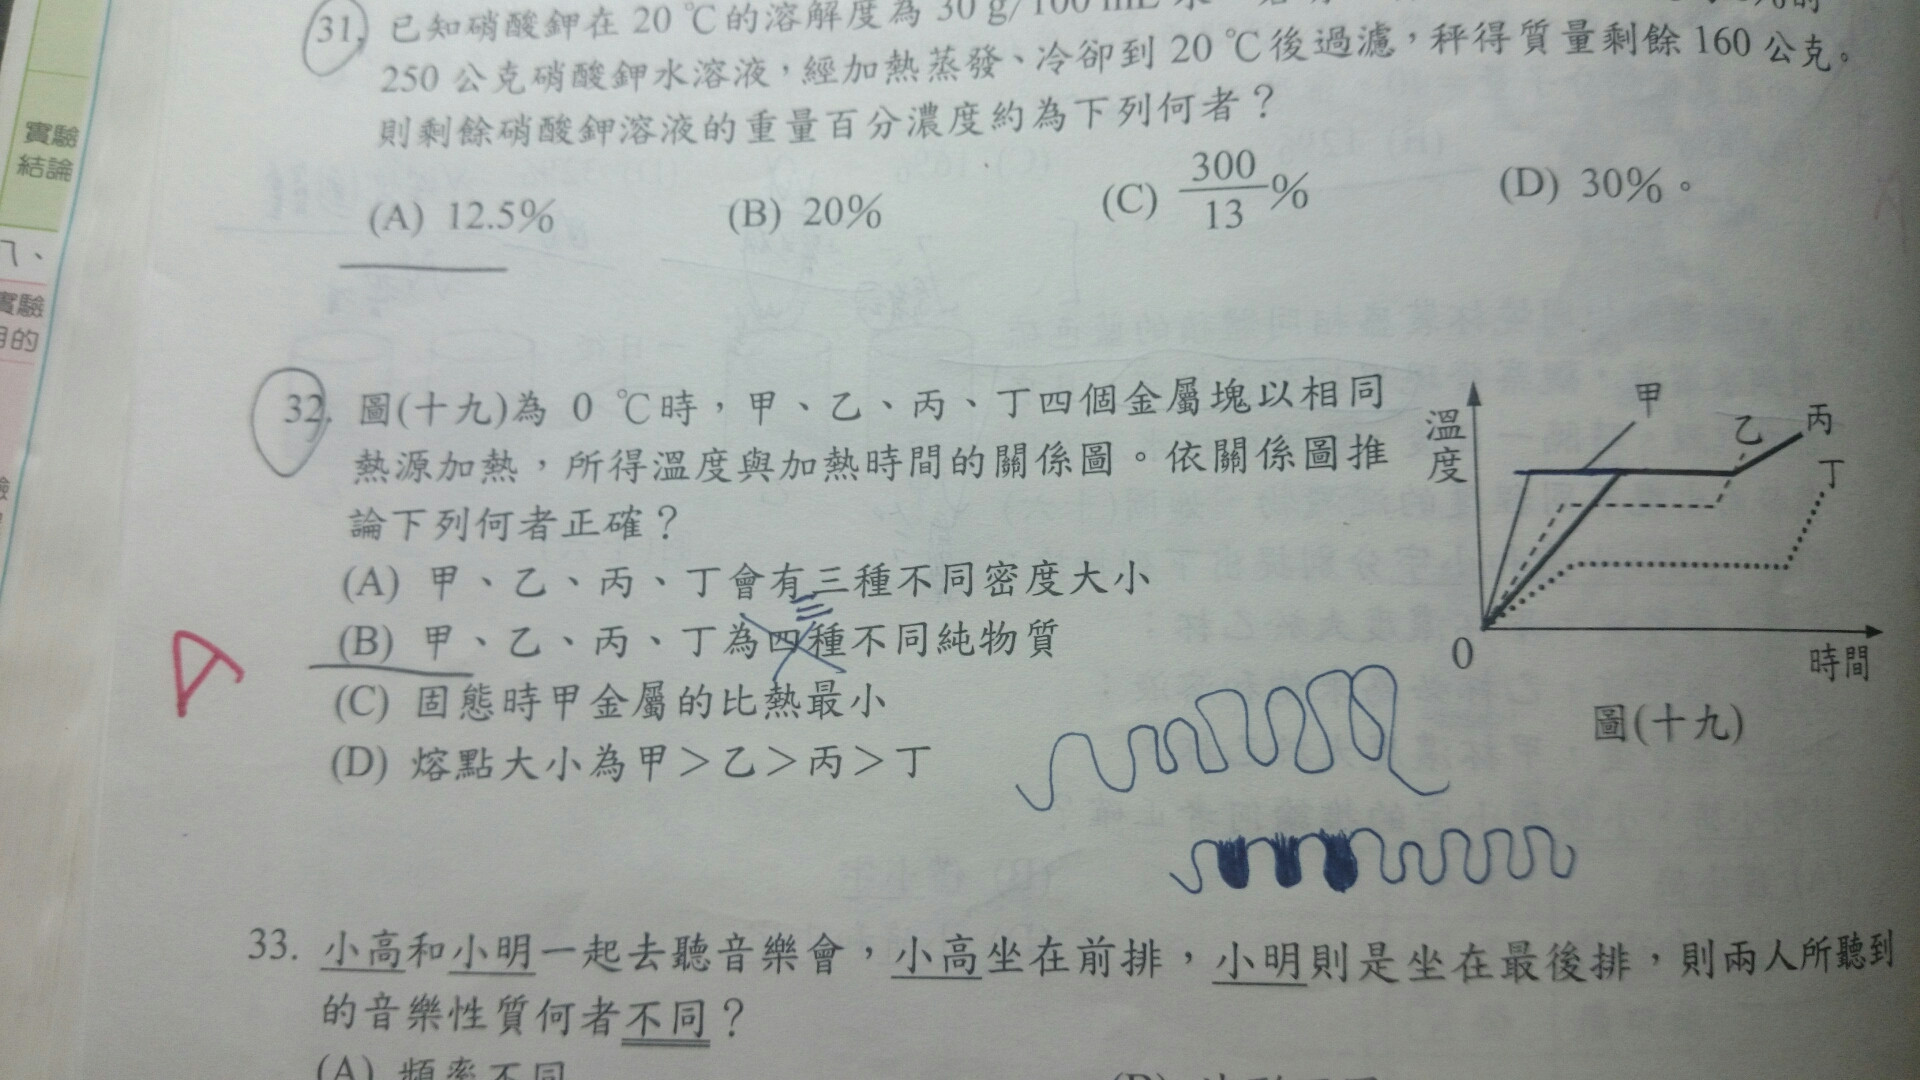 實驗
結論
實驗
的
31. 已知硝酸鉀在 20 ℃的溶解度為 30 g/100 mL 水
250 公克硝酸鉀水溶液，經加熱蒸發、冷卻到 20 ℃後過濾，秤得質量剩餘 160 公克。
則剩餘硝酸鉀溶液的重量百分濃度約為下列何者？
(A) 12.5% (B) 20% (C) 300/13 % (D) 30%。
32. 圖(十九)為 0 ℃時，甲、乙、丙、丁四個金屬塊以相同
熱源加熱，所得溫度與加熱時間的關係圖。依關係圖推
論下列何者正確？
(A) 甲、乙、丙、丁會有三種不同密度大小
三
(B) 甲、乙、丙、丁為四種不同純物質
(C) 固態時甲金屬的比熱最小
(D) 熔點大小為甲＞乙＞丙＞丁
A
溫度
甲
乙
丙
丁
0
時間
圖(十九)
33. 小高和小明一起去聽音樂會，小高坐在前排，小明則是坐在最後排，則兩人所聽到
的音樂性質何者不同？
(A) 頻率不同